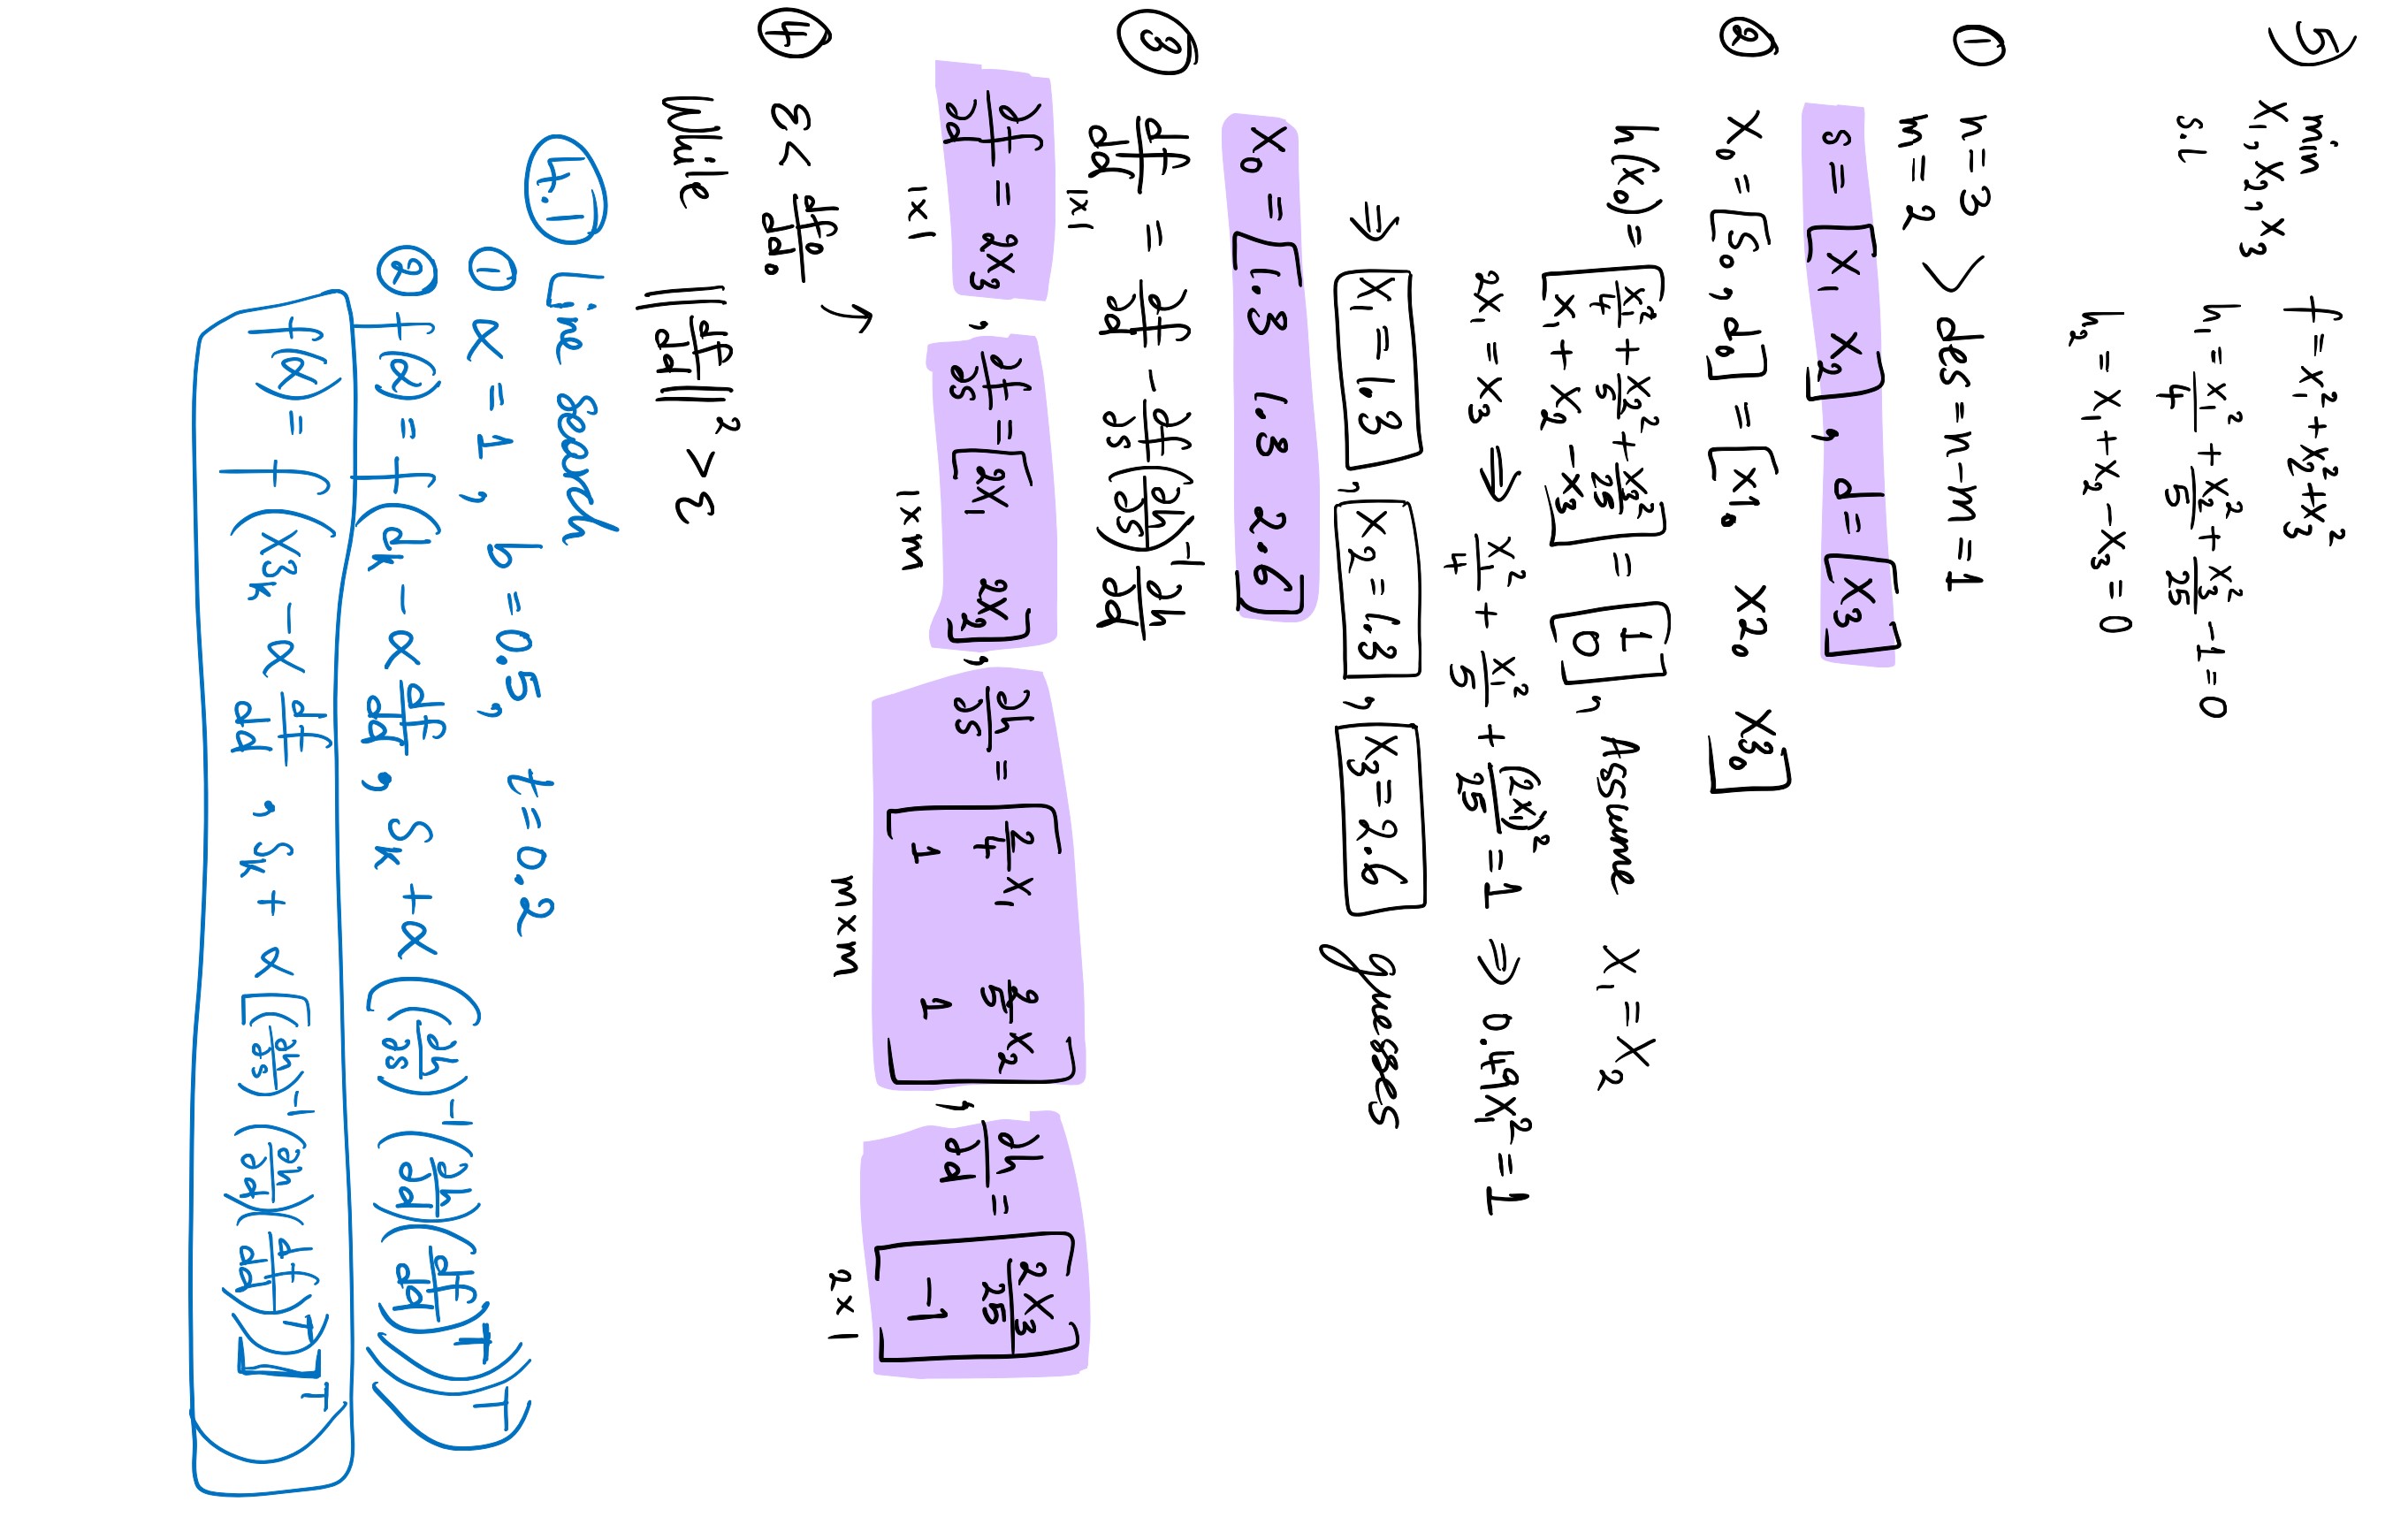 5) min f = x₁² + x₂² + x₃²
x₁, x₂, x₃
s.t h₁ = x₁²/4 + x₂²/5 + x₃²/25 − 1 = 0
h₂ = x₁ + x₂ − x₃ = 0
① n = 3
m = 2 > des = n − m = 1
s = [x₁ x₂], d = [x₃]
② x₀ = [s₀, d₀] = [x1₀ x2₀ x3₀]
h(x₀) = [x₁²/4 + x₂²/5 + x₃²/25 ; x₁ + x₂ − x₃] = [1 ; 0], Assume x₁ = x₂
2x₁ = x₃ ⟹ x₁²/4 + x₁²/5 + (2x₁)²/25 = 1 ⟹ 0.49x₁² = 1
⟹ x₁ = 1.3, x₂ = 1.3, x₃ = 2.6 guesses
x₀ = [1.3 1.3 2.6]
③ df/dd = ∂f/∂d − ∂f/∂s (∂h/∂s)⁻¹ ∂h/∂d
1×1
∂f/∂d = 2x₃, ∂f/∂s = [2x₁ 2x₂], ∂h/∂s = [2/4 x₁ 2/5 x₂ ; 1 1], ∂h/∂d = [2x₃/25 ; −1]
1×1 1×m m×m 2×1
④ ε < df₀/dd₀ ↑
While ‖df/dd‖² > ε
4.1 Line search
① α = 1, b = 0.5, t = 0.2
② f(α) = f(d_k − α df/dd, s_k + α((∂h/∂s)⁻¹(∂h/∂d(df/dd)ᵀ))ᵀ)
f(α) = f(x3_k − α df/dd, s_k + α[(∂h/∂s)⁻¹(∂h/∂d(df/dd)ᵀ)]ᵀ)